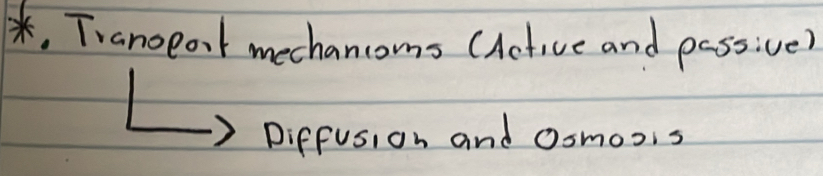 *. Transport mechanisms (Active and passive)
Diffusion and Osmosis